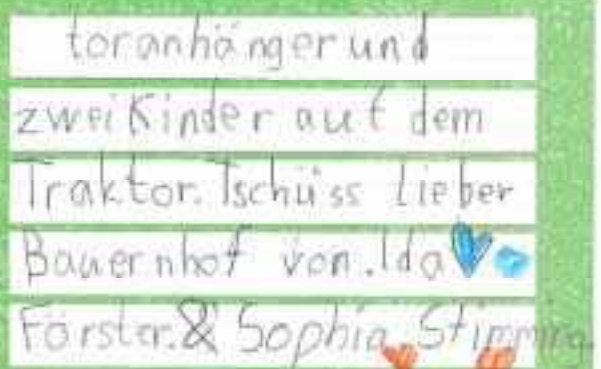 toranhänger und
zwei Kinder auf dem
Traktor. Tschüss lieber
Bauernhof von. Ida
Förster. & Sophia Stimming